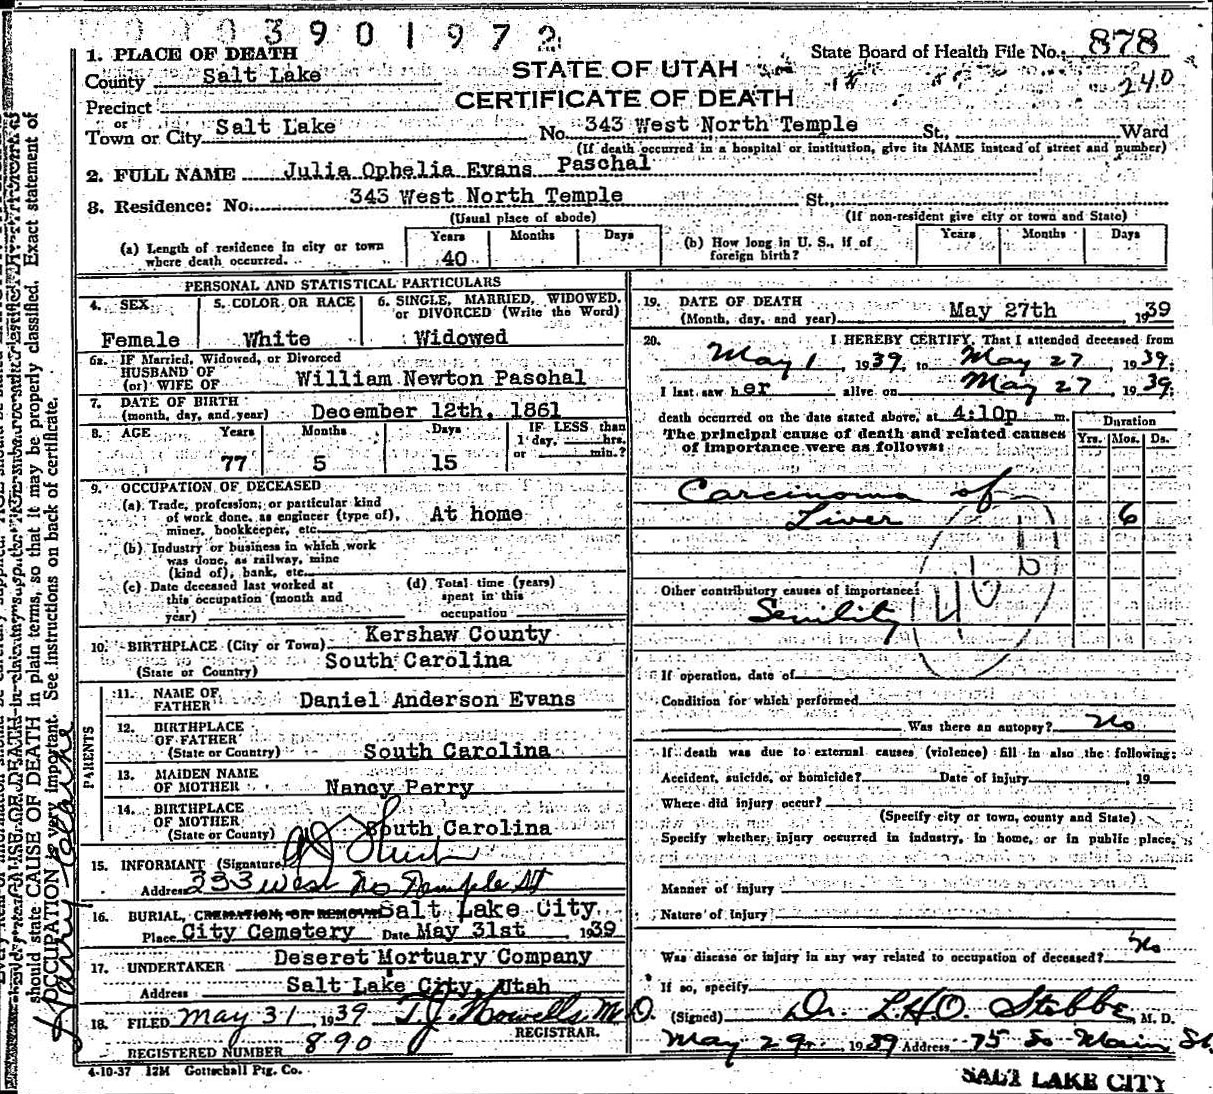 0003901972
1. PLACE OF DEATH
County Salt Lake
Precinct
or
Town or City Salt Lake
STATE OF UTAH
CERTIFICATE OF DEATH
State Board of Health File No. 878
240
No. 343 West North Temple St., Ward
(If death occurred in a hospital or institution, give its NAME instead of street and number)
2. FULL NAME Julia Ophelia Evans Paschal
3. Residence: No. 343 West North Temple St.,
(Usual place of abode) (If non-resident give city or town and State)
(a) Length of residence in city or town where death occurred. Years 40 Months Days
(b) How long in U. S., if of foreign birth? Years Months Days
PERSONAL AND STATISTICAL PARTICULARS
4. SEX Female
5. COLOR OR RACE White
6. SINGLE, MARRIED, WIDOWED, or DIVORCED (Write the Word) Widowed
6a. IF Married, Widowed, or Divorced
HUSBAND OF
(or) WIFE OF William Newton Paschal
7. DATE OF BIRTH
(month, day, and year) December 12th, 1861
8. AGE Years 77 Months 5 Days 15 IF LESS than 1 day, hrs. or min.?
9. OCCUPATION OF DECEASED
(a) Trade, profession, or particular kind of work done, as engineer (type of), miner, bookkeeper, etc. At home
(b) Industry or business in which work was done, as railway, mine (kind of), bank, etc.
(c) Date deceased last worked at this occupation (month and year)
(d) Total time (years) spent in this occupation
10. BIRTHPLACE (City or Town) Kershaw County
(State or Country) South Carolina
PARENTS
11. NAME OF FATHER Daniel Anderson Evans
12. BIRTHPLACE OF FATHER
(State or Country) South Carolina
13. MAIDEN NAME OF MOTHER Nancy Perry
14. BIRTHPLACE OF MOTHER
(State or Country) South Carolina
15. INFORMANT (Signature)
Address 233 West No Temple St
16. BURIAL, CREMATION, OR REMOVAL Salt Lake City
Place City Cemetery Date May 31st 1939
17. UNDERTAKER Deseret Mortuary Company
Address Salt Lake City, Utah
18. FILED May 31 1939 T.J. Howells M.D.
REGISTRAR.
REGISTERED NUMBER 890
4-10-37 12M Gottschall Ptg. Co.
19. DATE OF DEATH
(Month, day, and year) May 27th 1939
20. I HEREBY CERTIFY, That I attended deceased from
May 1 1939, to May 27, 1939;
I last saw her alive on May 27, 1939;
death occurred on the date stated above, at 4:10p m.
The principal cause of death and related causes of importance were as follows:
Duration
Yrs. Mos. Ds.
Carcinoma of
Liver 6
Other contributory causes of importance:
Senility
If operation, date of
Condition for which performed
Was there an autopsy? no
If death was due to external causes (violence) fill in also the following:
Accident, suicide, or homicide? Date of injury , 19
Where did injury occur?
(Specify city or town, county and State)
Specify whether injury occurred in industry, in home, or in public place.
Manner of injury
Nature of injury
Was disease or injury in any way related to occupation of deceased? no
If so, specify
(Signed) Dr. L.H.O. Stobbe, M. D.
May 29, 1939 Address 75 So Main St.
SALT LAKE CITY
should state CAUSE OF DEATH in plain terms, so that it may be properly classified. Exact statement of
OCCUPATION is very important. See instructions on back of certificate.